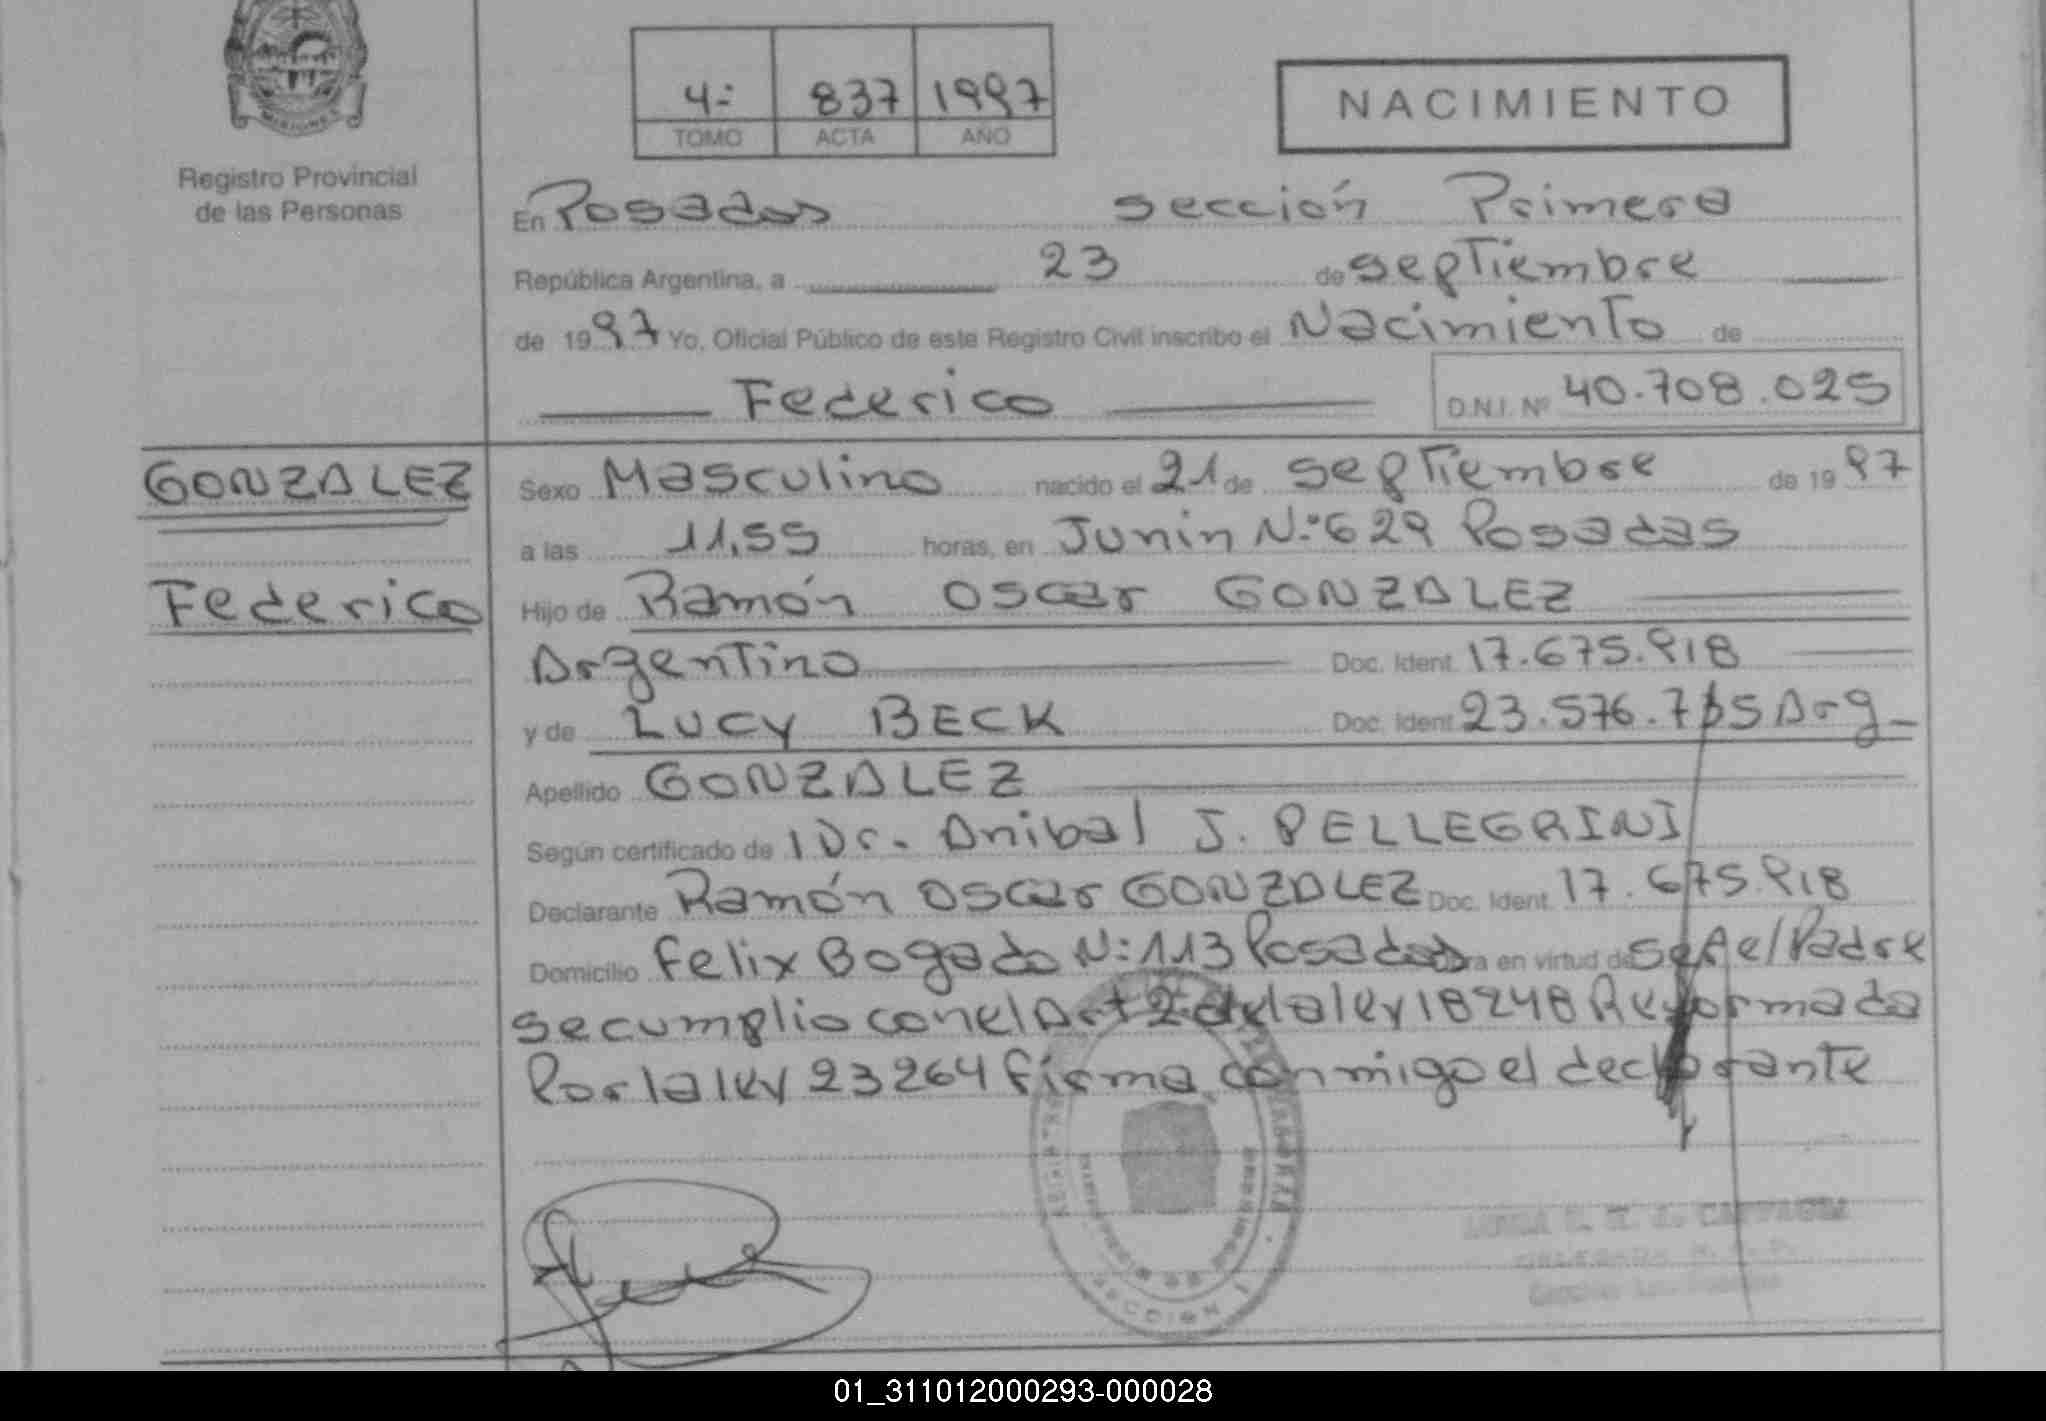 MISIONES
Registro Provincial
de las Personas
4º 837 1997
TOMO ACTA AÑO
NACIMIENTO
En Posadas sección Primera
República Argentina, a 23 de septiembre
de 1997 Yo, Oficial Público de este Registro Civil inscribo el Nacimiento de
Federico D.N.I. Nº 40.708.025
GONZALEZ
Federico
Sexo Masculino nacido el 21 de septiembre de 1997
a las 11,55 horas, en Junin Nº 629 Posadas
Hijo de Ramón Oscar GONZALEZ
Argentino Doc. Ident. 17.675.918
y de LUCY BECK Doc. Ident. 23.576.715 Arg
Apellido GONZALEZ
Según certificado de 1 Dr. Anibal J. PELLEGRINI
Declarante Ramón Oscar GONZALEZ Doc. Ident. 17.675.918
Domicilio Felix Bogado Nº 113 Posadas en virtud de ser el Padre
se cumplio con el Art 2 de la ley 18248 Reformada
Por la ley 23264 firma conmigo el declarante
SECCION 1
01_311012000293-000028